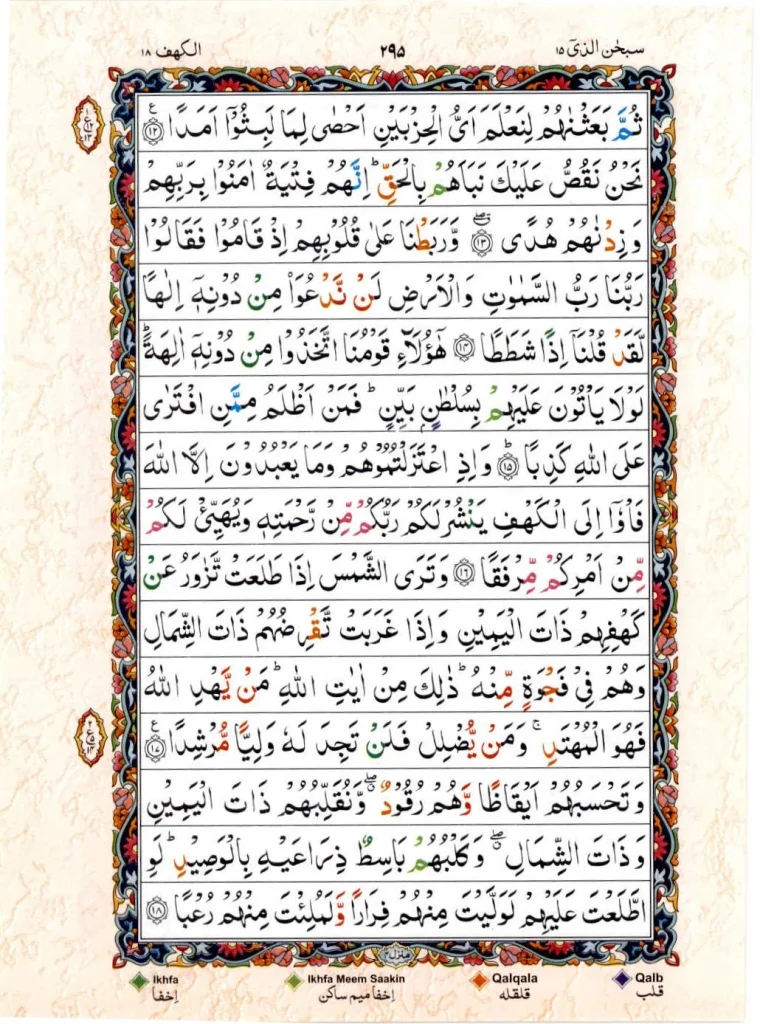 سبحٰن الذیٓ ۱۵
۲۹۵
الکھف ۱۸
ثُمَّ بَعَثْنٰهُمْ لِنَعْلَمَ اَیُّ الْحِزْبَیْنِ اَحْصٰی لِمَا لَبِثُوْۤا اَمَدًا ﴿۱۲﴾ ع
نَحْنُ نَقُصُّ عَلَیْكَ نَبَاَهُمْ بِالْحَقِّ ؕ اِنَّهُمْ فِتْیَةٌ اٰمَنُوْا بِرَبِّهِمْ
وَ زِدْنٰهُمْ هُدًی ﴿۱۳﴾ وَّ رَبَطْنَا عَلٰی قُلُوْبِهِمْ اِذْ قَامُوْا فَقَالُوْا
رَبُّنَا رَبُّ السَّمٰوٰتِ وَ الْاَرْضِ لَنْ نَّدْعُوَاۡ مِنْ دُوْنِهٖۤ اِلٰهًا
لَّقَدْ قُلْنَاۤ اِذًا شَطَطًا ﴿۱۴﴾ هٰۤؤُلَآءِ قَوْمُنَا اتَّخَذُوْا مِنْ دُوْنِهٖۤ اٰلِهَةً ؕ
لَوْلَا یَاْتُوْنَ عَلَیْهِمْ بِسُلْطٰنٍۭ بَیِّنٍ ؕ فَمَنْ اَظْلَمُ مِمَّنِ افْتَرٰی
عَلَی اللّٰهِ كَذِبًا ﴿۱۵﴾ؕ وَ اِذِ اعْتَزَلْتُمُوْهُمْ وَ مَا یَعْبُدُوْنَ اِلَّا اللّٰهَ
فَاْوٗۤا اِلَی الْكَهْفِ یَنْشُرْ لَكُمْ رَبُّكُمْ مِّنْ رَّحْمَتِهٖ وَیُهَیِّئْ لَكُمْ
مِّنْ اَمْرِكُمْ مِّرْفَقًا ﴿۱۶﴾ وَ تَرَی الشَّمْسَ اِذَا طَلَعَتْ تَّزٰوَرُ عَنْ
كَهْفِهِمْ ذَاتَ الْیَمِیْنِ وَ اِذَا غَرَبَتْ تَّقْرِضُهُمْ ذَاتَ الشِّمَالِ
وَ هُمْ فِیْ فَجْوَةٍ مِّنْهُ ؕ ذٰلِكَ مِنْ اٰیٰتِ اللّٰهِ ؕ مَنْ یَّهْدِ اللّٰهُ
فَهُوَ الْمُهْتَدِ ۚ وَ مَنْ یُّضْلِلْ فَلَنْ تَجِدَ لَهٗ وَلِیًّا مُّرْشِدًا ﴿۱۷﴾ ع
وَ تَحْسَبُهُمْ اَیْقَاظًا وَّ هُمْ رُقُوْدٌ ۖ وَّ نُقَلِّبُهُمْ ذَاتَ الْیَمِیْنِ
وَ ذَاتَ الشِّمَالِ ۖ وَ كَلْبُهُمْ بَاسِطٌ ذِرَاعَیْهِ بِالْوَصِیْدِ ؕ لَوِ
اطَّلَعْتَ عَلَیْهِمْ لَوَلَّیْتَ مِنْهُمْ فِرَارًا وَّ لَمُلِئْتَ مِنْهُمْ رُعْبًا ﴿۱۸﴾
منزل ۴
Ikhfa
Ikhfa Meem Saakin
Qalqala
Qalb
اِخفا
اِخفا میم ساکن
قلقلہ
قلب